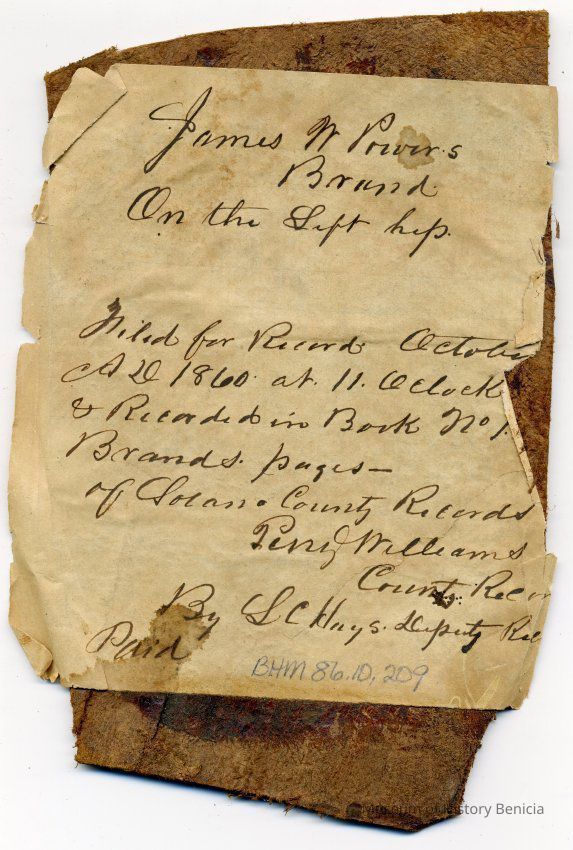 James W Powers
Brand
On the Left hip.
Filed for Record October
A D 1860 at 11. Oclock
& Recorded in Book No 1.
Brands. pages—
of Solano County Records
Perry Williams
County Recor
By L C Hays. Deputy Rec
Paid
BHM 86.10.209
© Museum of History Benicia